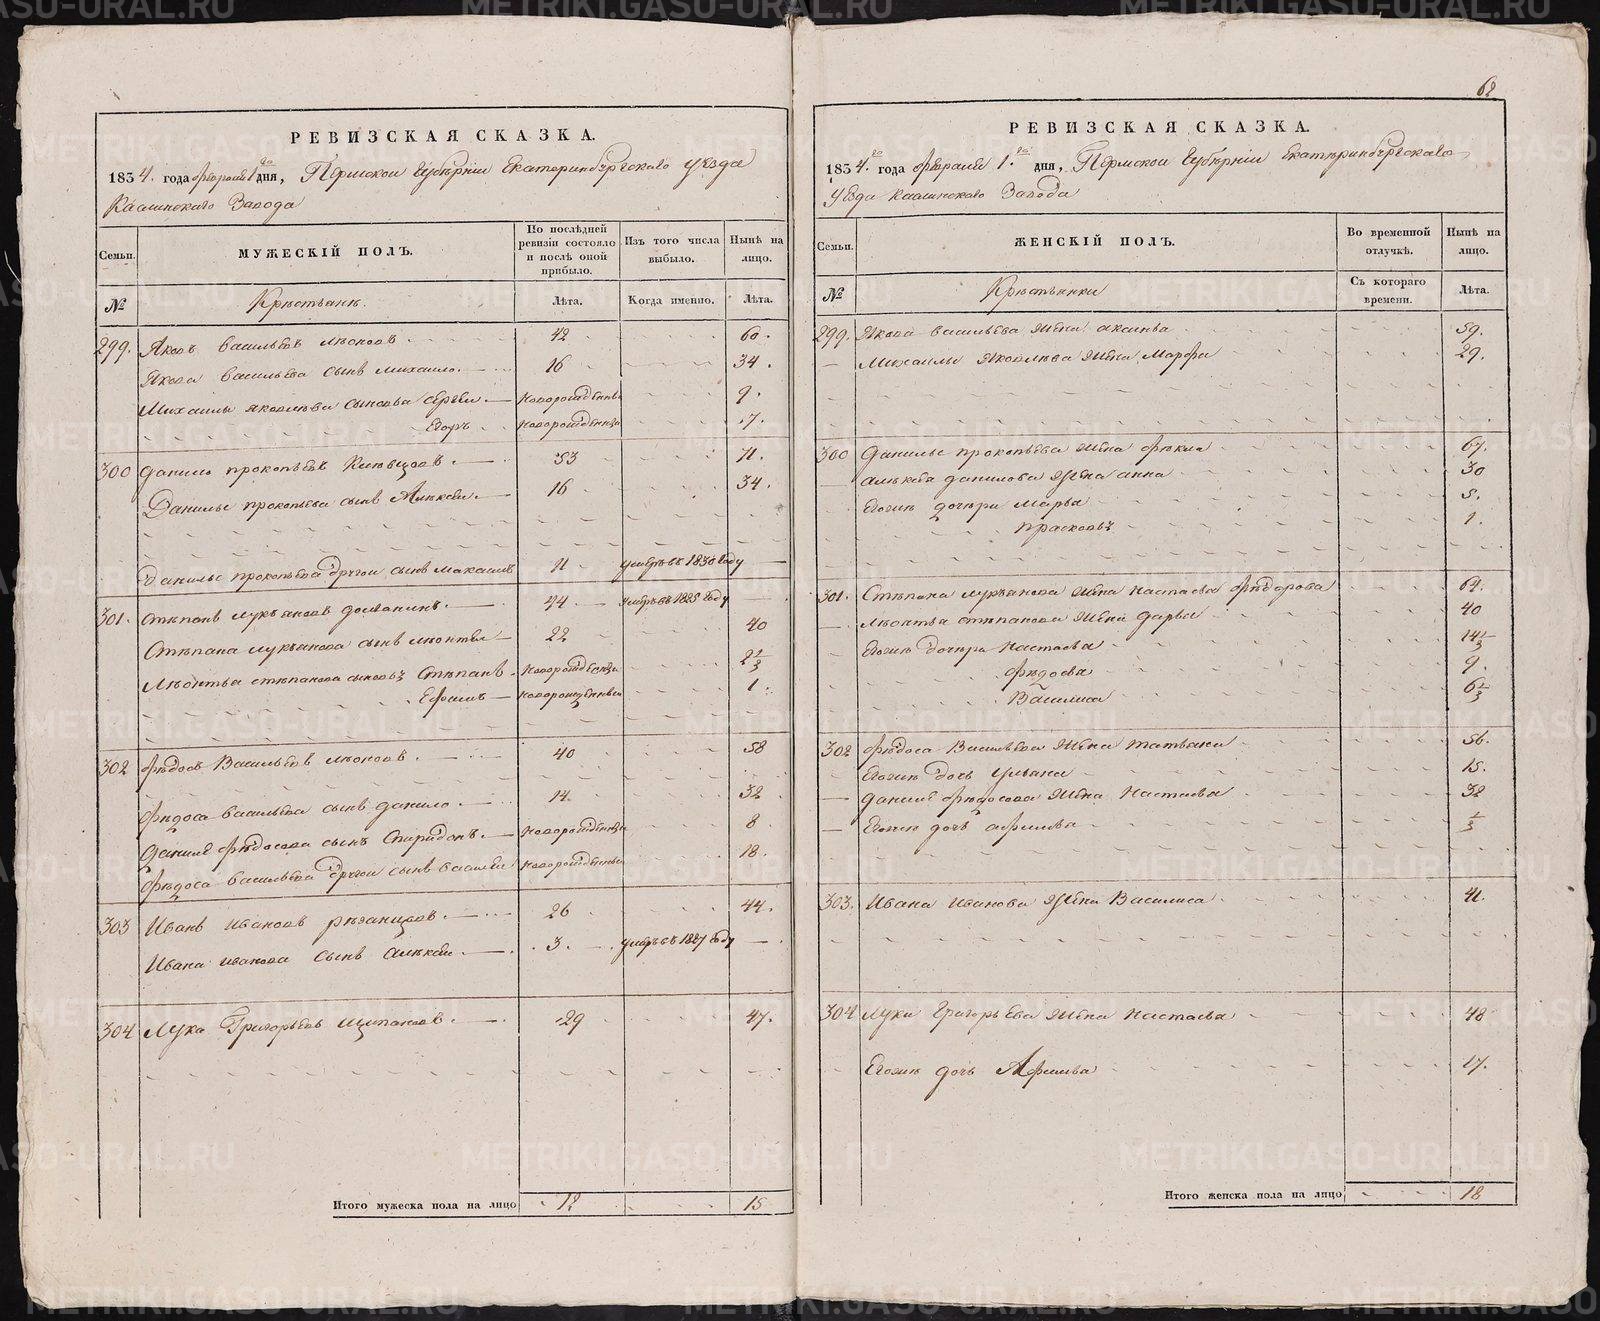 62
РЕВИЗСКАЯ СКАЗКА.
1834. года февраля 1го дня, Пермской Губернiи Екатеринбургскаго уезда
Каслинскаго Завода
Семьи.
МУЖЕСКIЙ ПОЛЪ.
По послѣдней ревизiи состояло и послѣ оной прибыло.
Изъ того числа выбыло.
Нынѣ на лицо.
№
Крѣстьянѣ.
Лѣта.
Когда именно.
Лѣта.
299. Яковъ Васильевъ 42 60.
Якова Васильева сынъ Михаило. 16 34.
Михаилы Яковлева сыновья Сергей новорожденны 9.
Егоръ новорожденны 7.
300 Данило Прокопьевъ 53 71.
Данилы Прокопьева сынъ Алѣксей. 16 34.
Данилы Прокопьева другой сынъ Максимъ 11 умеръ въ 1830 году
301. Стѣпанъ Лукьяновъ 44 умеръ въ 1825 году
Стѣпана Лукьянова сынъ Лѣонтей 22 40
Лѣонтья Стѣпанова сыновья Стѣпанъ новорожденны 2 1/3
Ефимъ новорожденны 1.
302 Фѣдосъ Васильевъ 40 58
Фѣдоса Васильева сынъ Данило. 14 32
Данилы Фѣдосова сынъ Спиридонъ. новорожденны 8
Фѣдоса Васильева другой сынъ Василей новорожденны 18.
303 Иванъ Ивановъ Рѣзанцовъ. 26 44.
Ивана Иванова сынъ Алѣксей 3. умеръ въ 1827 году
304 Лука Григорьевъ 29 47.
Итого мужеска пола на лицо 12 15
РЕВИЗСКАЯ СКАЗКА.
1834.го года февраля 1.го дня, Пермской Губернiи Екатѣринбургскаго
Уезда Каслинскаго Завода
Семьи.
ЖЕНСКIЙ ПОЛЪ.
Во временной отлучкѣ.
Нынѣ на лицо.
№
Крѣстьянки
Съ котораго времени.
Лѣта.
299. Якова Васильева жена Аксинья 59.
Михаилы Яковлева жена Марфа 29.
300 Данилы Прокопьева жена Фѣкла 67.
Алѣксея Данилова жена Анна 30
Еголи дочѣри Марья 5.
Прасковья 1.
301. Стѣпана Лукьянова жена Настасья Фѣдорова 64.
Лѣонтья Стѣпанова жена Дарья 40
Еголи дочѣри Настасья 14 1/3
Фѣдосья 9.
Василиса 6 1/3
302 Фѣдоса Васильева жена Татьяна 56.
Еголи дочь Ульяна 15.
Данилы Фѣдосова жена Настасья 32
Еголи дочь Афимья 1/3
303. Ивана Иванова жена Василиса 41.
304 Луки Григорьева жена Настасья 48
Еголи дочь Афимья 17.
Итого женска пола на лицо 18
METRIKI.GASO-URAL.RU